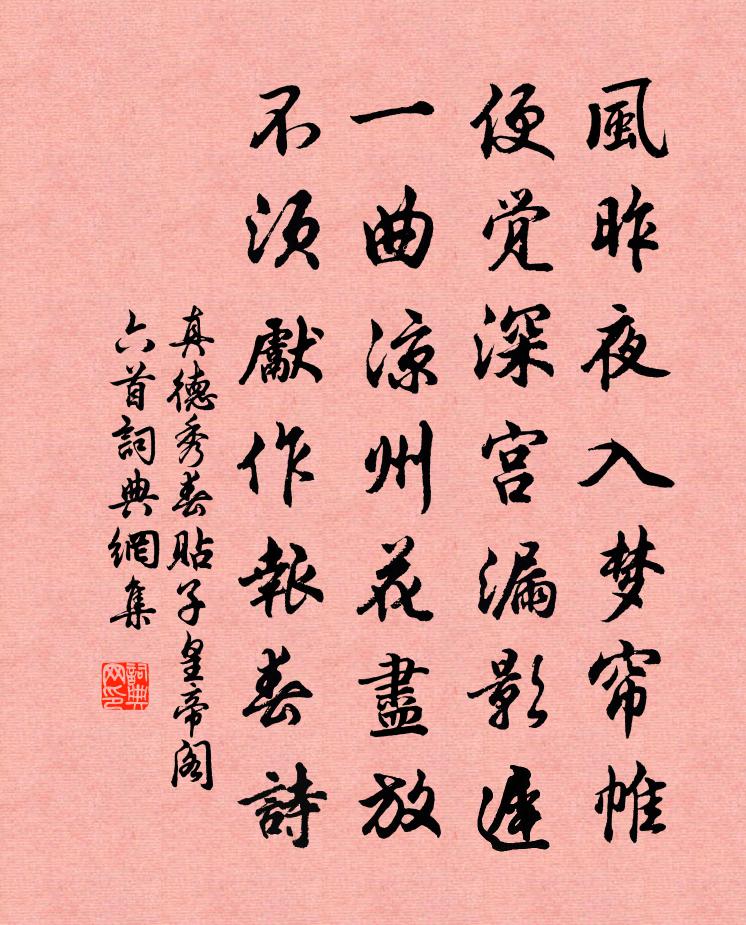 風昨夜入梦帘帷
便觉深宫漏影遲
一曲凉州花盡放
不须獻作報春詩
真德秀春貼子皇帝阁
六首詞典網集
詞典网印